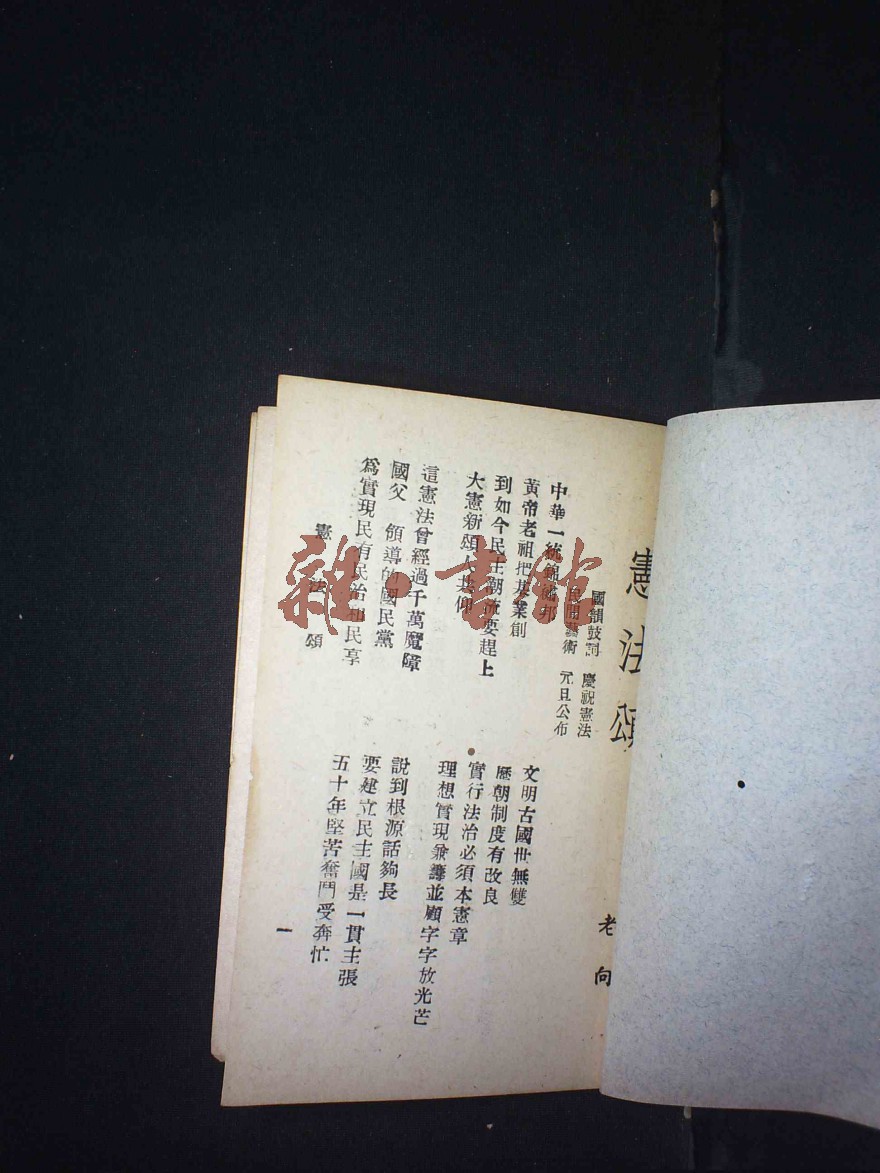 憲法頌
老向
國韻鼓詞 慶祝憲法
藝術 元旦公布
中華一統錦繡邦 文明古國世無雙
黃帝老祖把基業創 歷朝制度有改良
到如今民主潮流要趕上 實行法治必須本憲章
大憲新頒人共仰 理想實現兼籌並顧字字放光芒
這憲法曾經過千萬魔障 說到根源話夠長
國父 領導的國民黨 要建立民主國是一貫主張
爲實現民有民治和民享 五十年堅苦奮鬥受奔忙
憲法頌 一
雜·書館